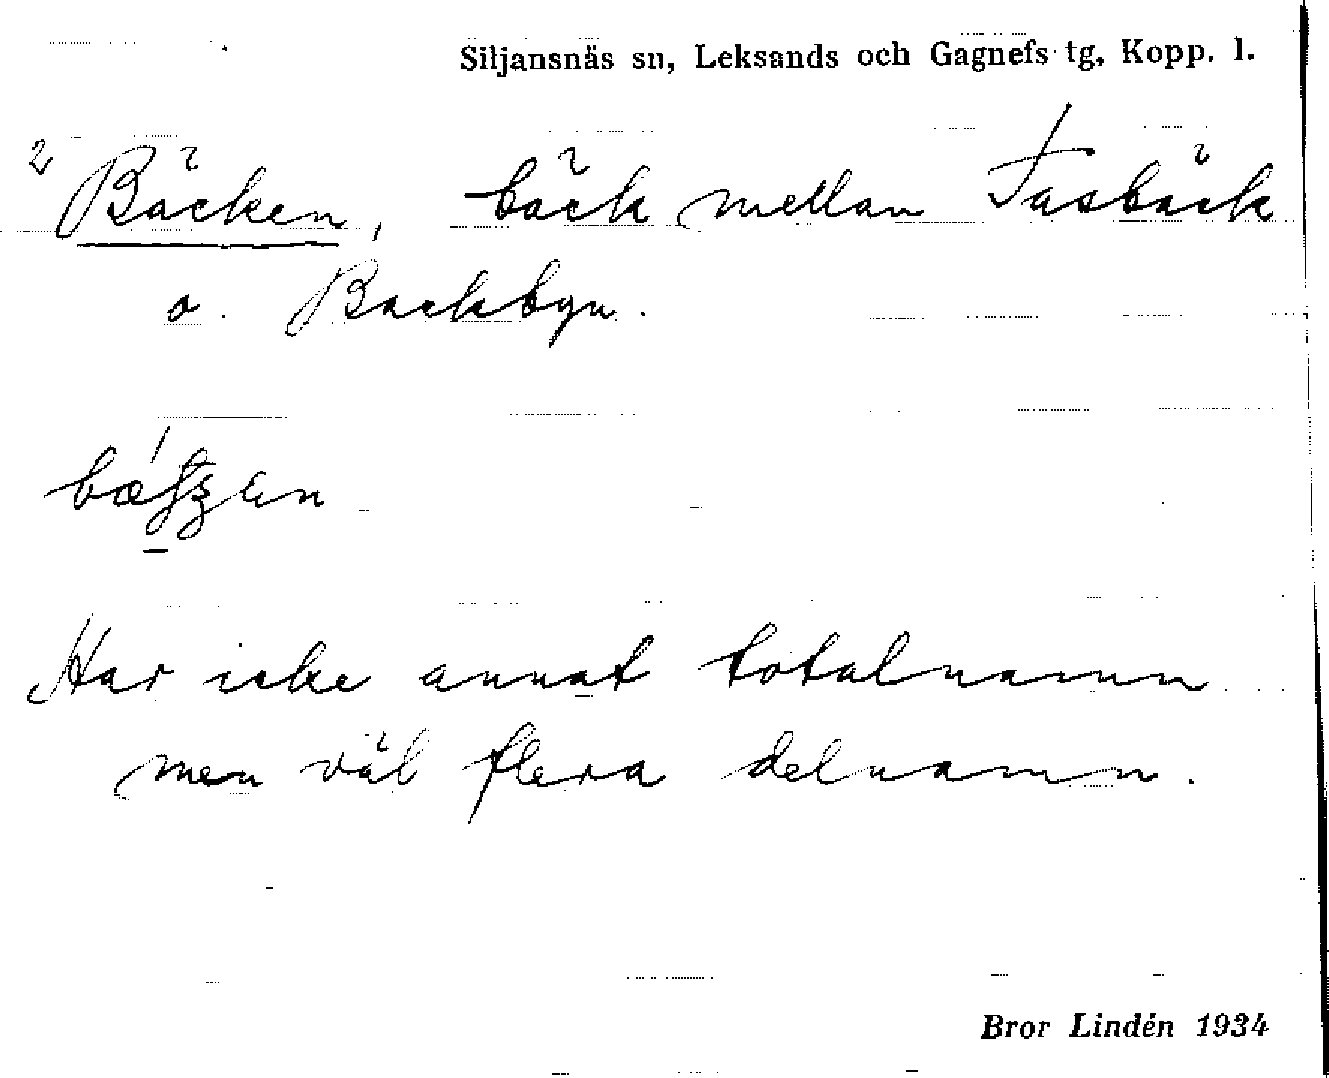 Siljansnäs sn, Leksands och Gagnefs tg. Kopp. l.
2 Bäcken, bäck mellan Fasbäck
o. Backbyn.
Har icke annat totalnamn
men väl flera delnamn.
Bror Lindén 1934